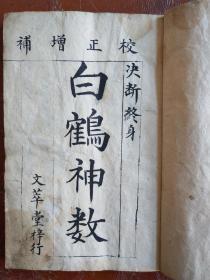 校正增補
决断終身
白鶴神数
文萃堂梓行